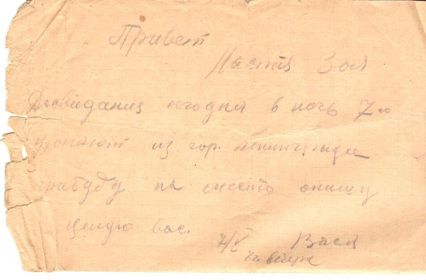 Привет
Настя Зоя
Досвидания сегодня в ночь 7го
из гор. Ленинграда
прибуду на место опишу
целую вас.
7/V Вася